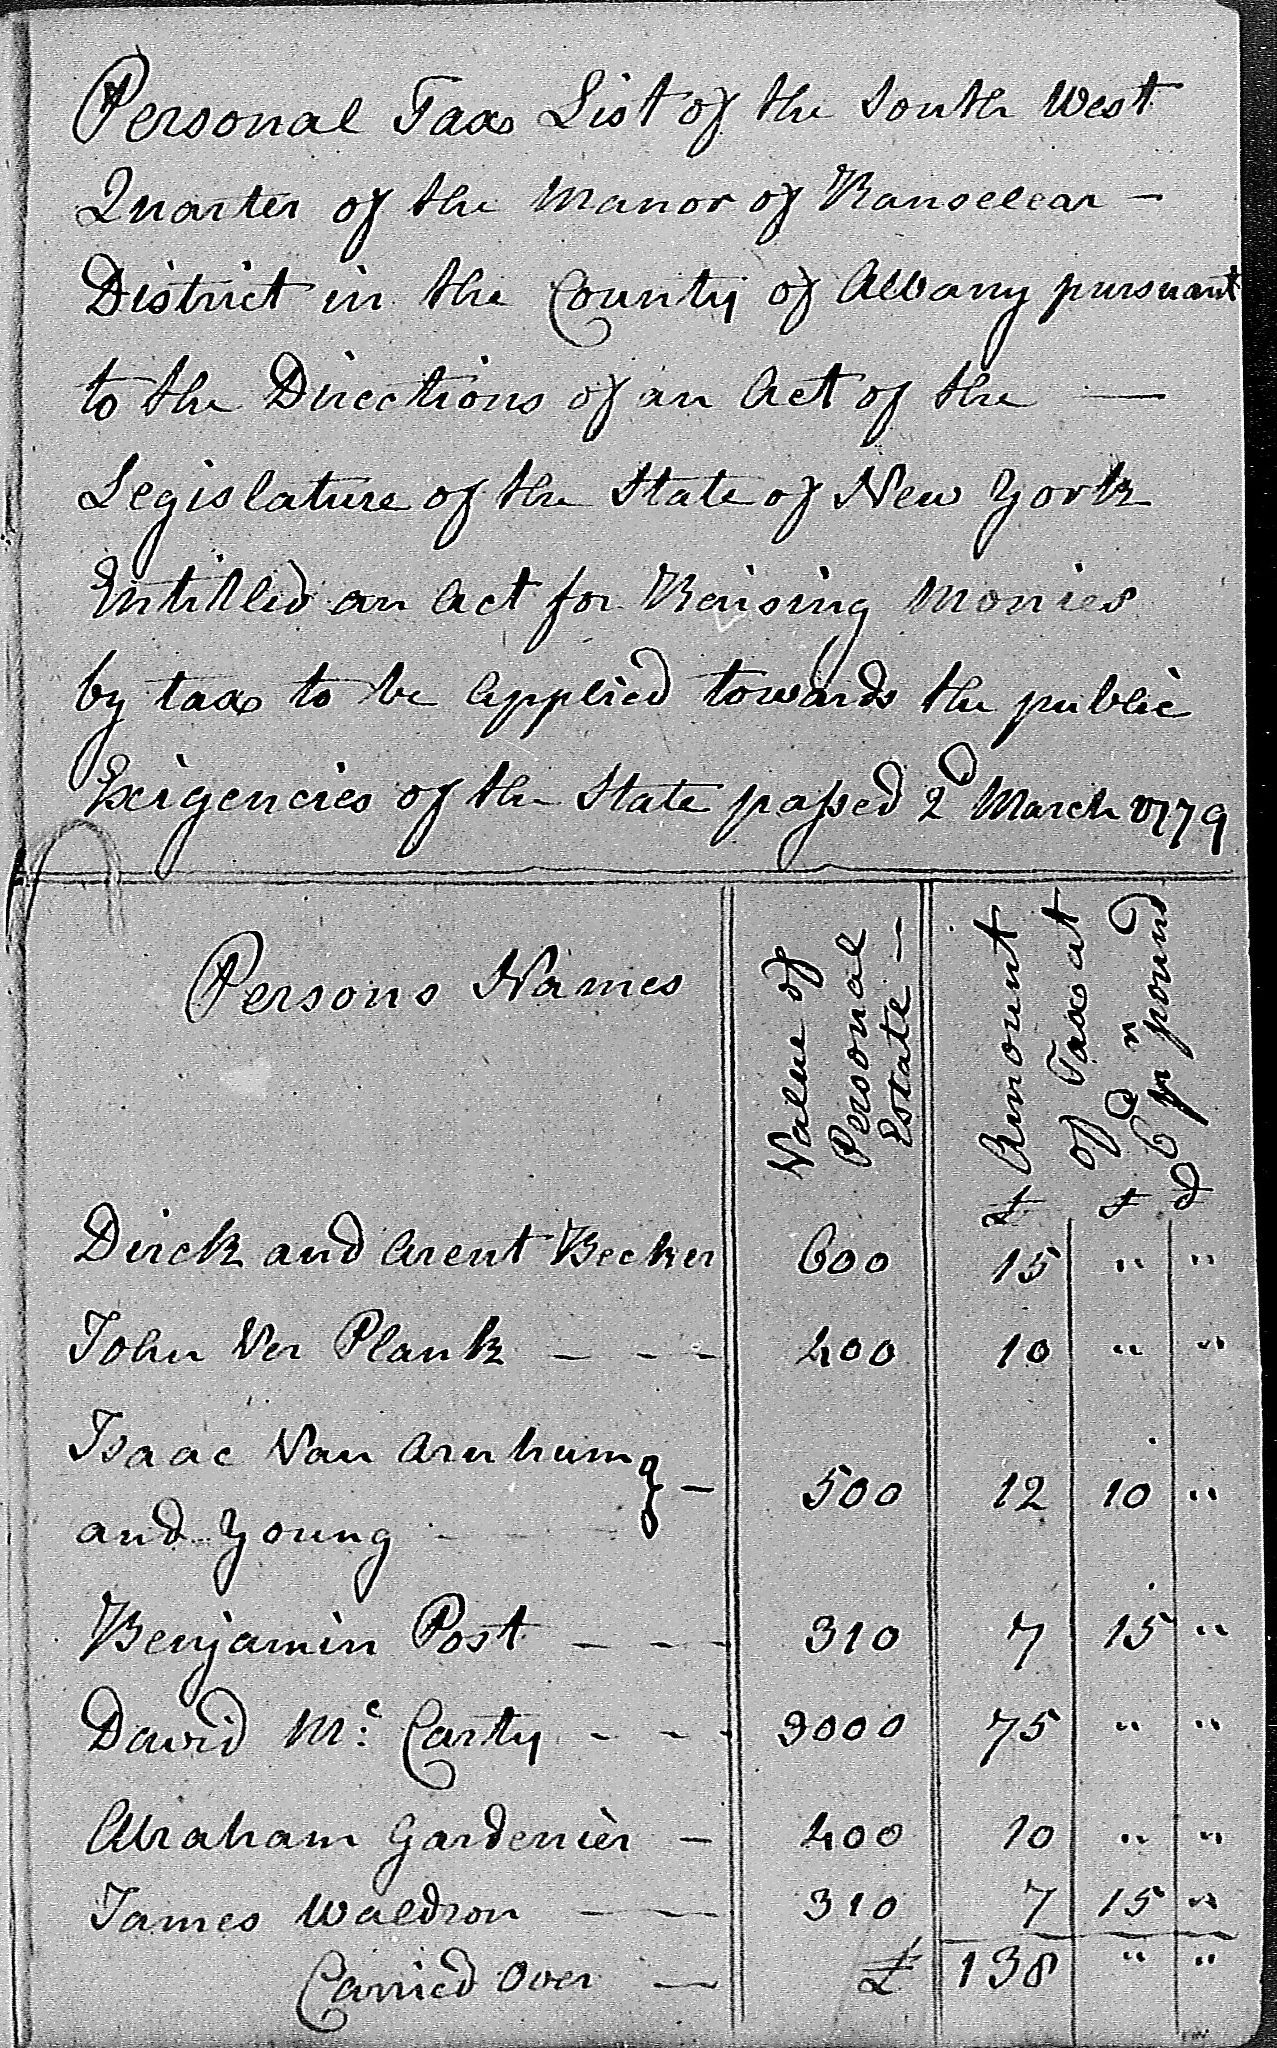 Personal Tax List of the South West
Quarter of the Manor of Ranselear —
District in the County of Albany pursuant
to the Directions of an Act of the —
Legislature of the State of New York
Entitled an Act for Raising Monies
by tax to be Applied towards the public
Exigencies of the State passed 2d March 1779
Persons Names
Value of
Personal
Estate —
Amount
of Tax at
6d p pound
£ s d
Dirck and Arent Becker 600 15 " "
John Ver Plank - - - 400 10 " "
Isaac Van Arnhum
and Young - - - } - 500 12 10 "
Benjamin Post - - - 310 7 15 "
David Mc: Carty - - - 3000 75 " "
Abraham Gardenier - 400 10 " "
James Waldron — — 310 7 15 "
Carried Over — £ 138 " "